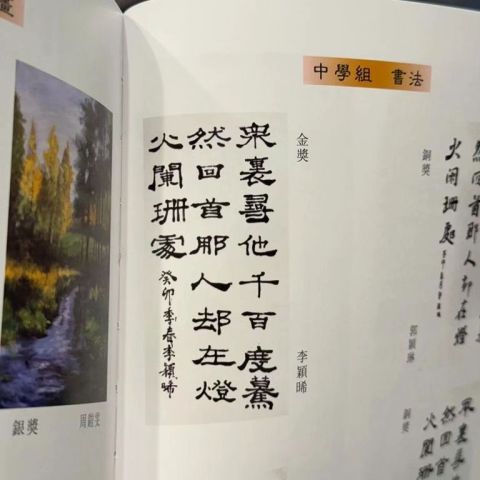 畫
中學組 書法
金獎
李穎晞
眾裏尋他千百度驀
然回首那人却在燈
火闌珊處
癸卯季春李穎晞
銅獎
郭穎琳
然回首那人却在燈
火闌珊處
銅獎
然回首
火闌珊
銀獎